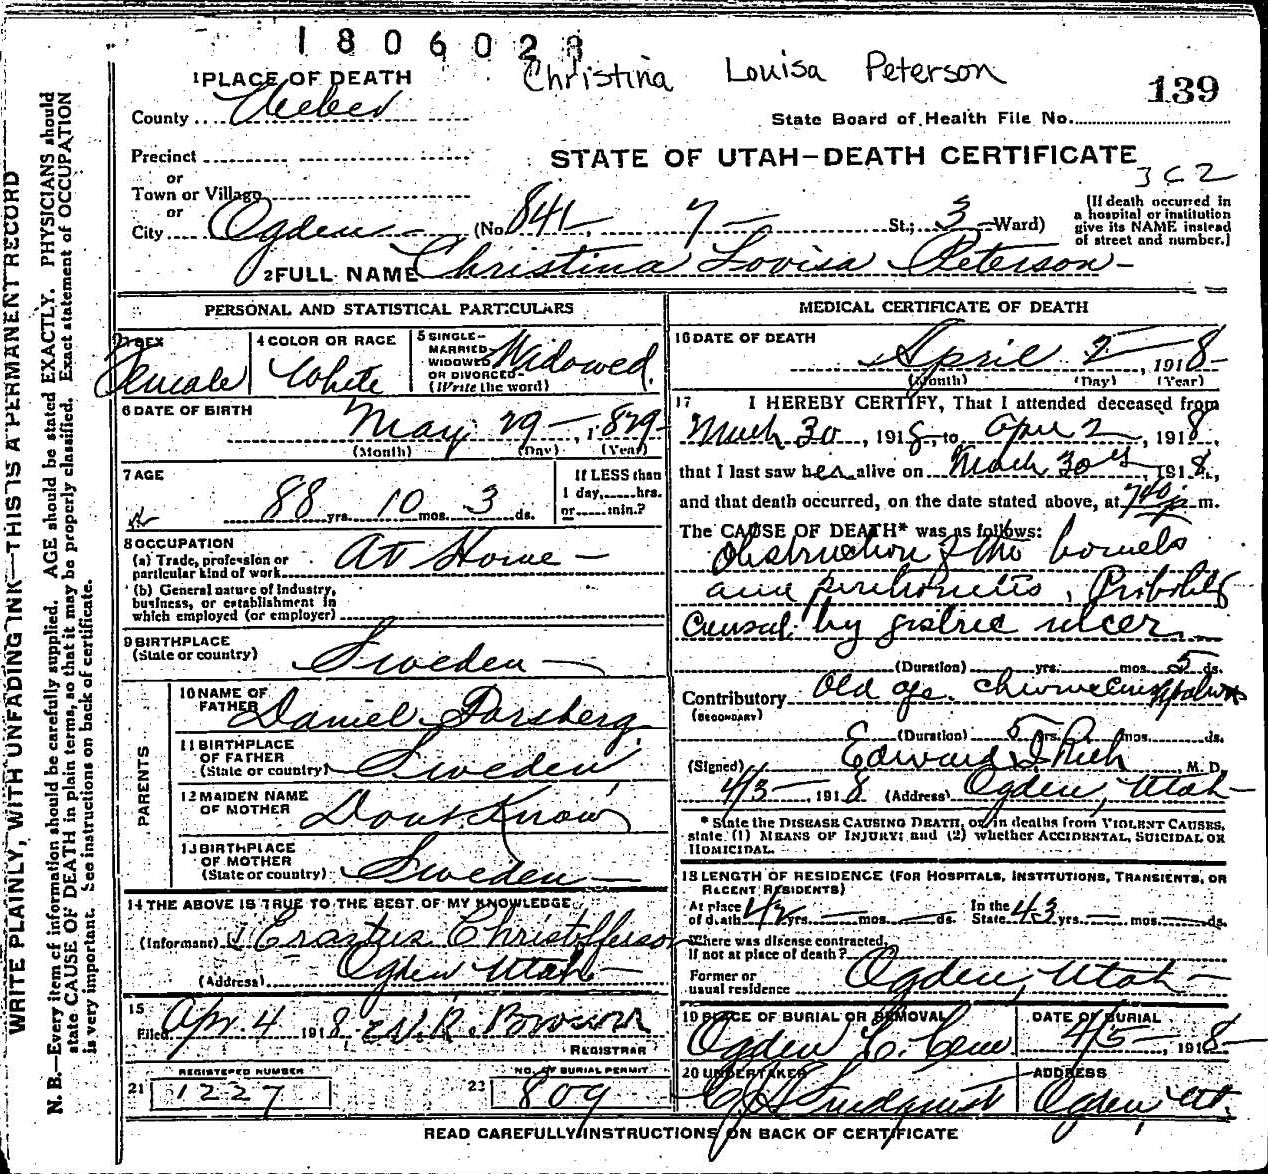 1806028
Christina Louisa Peterson
139
1 PLACE OF DEATH
County Weber
State Board of Health File No.
Precinct
STATE OF UTAH—DEATH CERTIFICATE
3 C 2
or
Town or Village
or
City Ogden (No. 841, 7 St.; 3 Ward)
(If death occurred in a hospital or institution give its NAME instead of street and number.]
2 FULL NAME Christina Lovisa Peterson
PERSONAL AND STATISTICAL PARTICULARS
3 SEX Female
4 COLOR OR RACE White
5 SINGLE— MARRIED— WIDOWED— OR DIVORCED— (Write the word) Widowed.
6 DATE OF BIRTH May 29, 1829
(Month) (Day) (Year)
7 AGE 88 yrs. 10 mos. 3 ds.
If LESS than 1 day, hrs. or min.?
8 OCCUPATION
(a) Trade, profession or particular kind of work At Home
(b) General nature of industry, business, or establishment in which employed (or employer)
9 BIRTHPLACE
(State or country) Sweden
PARENTS
10 NAME OF FATHER Daniel
11 BIRTHPLACE OF FATHER
(State or country) Sweden
12 MAIDEN NAME OF MOTHER Dont Know
13 BIRTHPLACE OF MOTHER
(State or country) Sweden
14 THE ABOVE IS TRUE TO THE BEST OF MY KNOWLEDGE
(Informant) Erastus Christofferson
(Address) Ogden Utah
15
Filed Apr. 4 1918
REGISTRAR
21 REGISTERED NUMBER 1227
22 NO. OF BURIAL PERMIT 809
MEDICAL CERTIFICATE OF DEATH
16 DATE OF DEATH
April 2, 1918
(Month) (Day) (Year)
17 I HEREBY CERTIFY, That I attended deceased from
March 30, 1918, to April 2, 1918,
that I last saw her alive on March 30, 1918,
and that death occurred, on the date stated above, at 740 p m.
The CAUSE OF DEATH* was as follows:
Obstruction of the bowels
and peritonitis, Probably
Caused by gastric ulcer
(Duration) yrs. mos. 5 ds.
Contributory Old age.
(SECONDARY)
(Duration) 5 yrs. mos. ds.
(Signed) Edward I Rich M. D.
4/3, 1918 (Address) Ogden, Utah
* State the DISEASE CAUSING DEATH, or, in deaths from VIOLENT CAUSES, state (1) MEANS OF INJURY; and (2) whether ACCIDENTAL, SUICIDAL OR HOMICIDAL.
18 LENGTH OF RESIDENCE (FOR HOSPITALS, INSTITUTIONS, TRANSIENTS, OR RECENT RESIDENTS)
At place of death 42 yrs. mos. ds. In the State 43 yrs. mos. ds.
Where was disease contracted, If not at place of death?
Former or usual residence Ogden, Utah
19 PLACE OF BURIAL OR REMOVAL
Ogden C. Cem
DATE OF BURIAL
4/5, 1918
20 UNDERTAKER
ADDRESS
Ogden, Ut.
READ CAREFULLY INSTRUCTIONS ON BACK OF CERTIFICATE
WRITE PLAINLY, WITH UNFADING INK—THIS IS A PERMANENT RECORD
N. B.—Every item of information should be carefully supplied. AGE should be stated EXACTLY. PHYSICIANS should
state CAUSE OF DEATH in plain terms, so that it may be properly classified. Exact statement of OCCUPATION
is very important. See instructions on back of certificate.